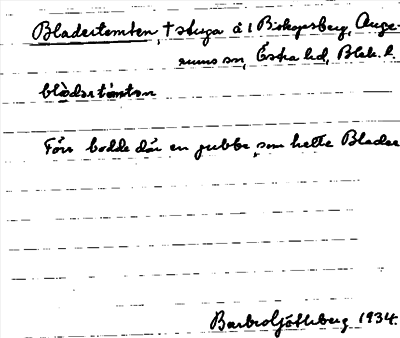 Bladertomten, † stuga å 1 Biskopsberg, Auge-
rums sn, Östra hd, Blek. l.
blàdərtåmtən
Förr bodde där en gubbe, som hette Blader
Barbro Götlberg 1934.